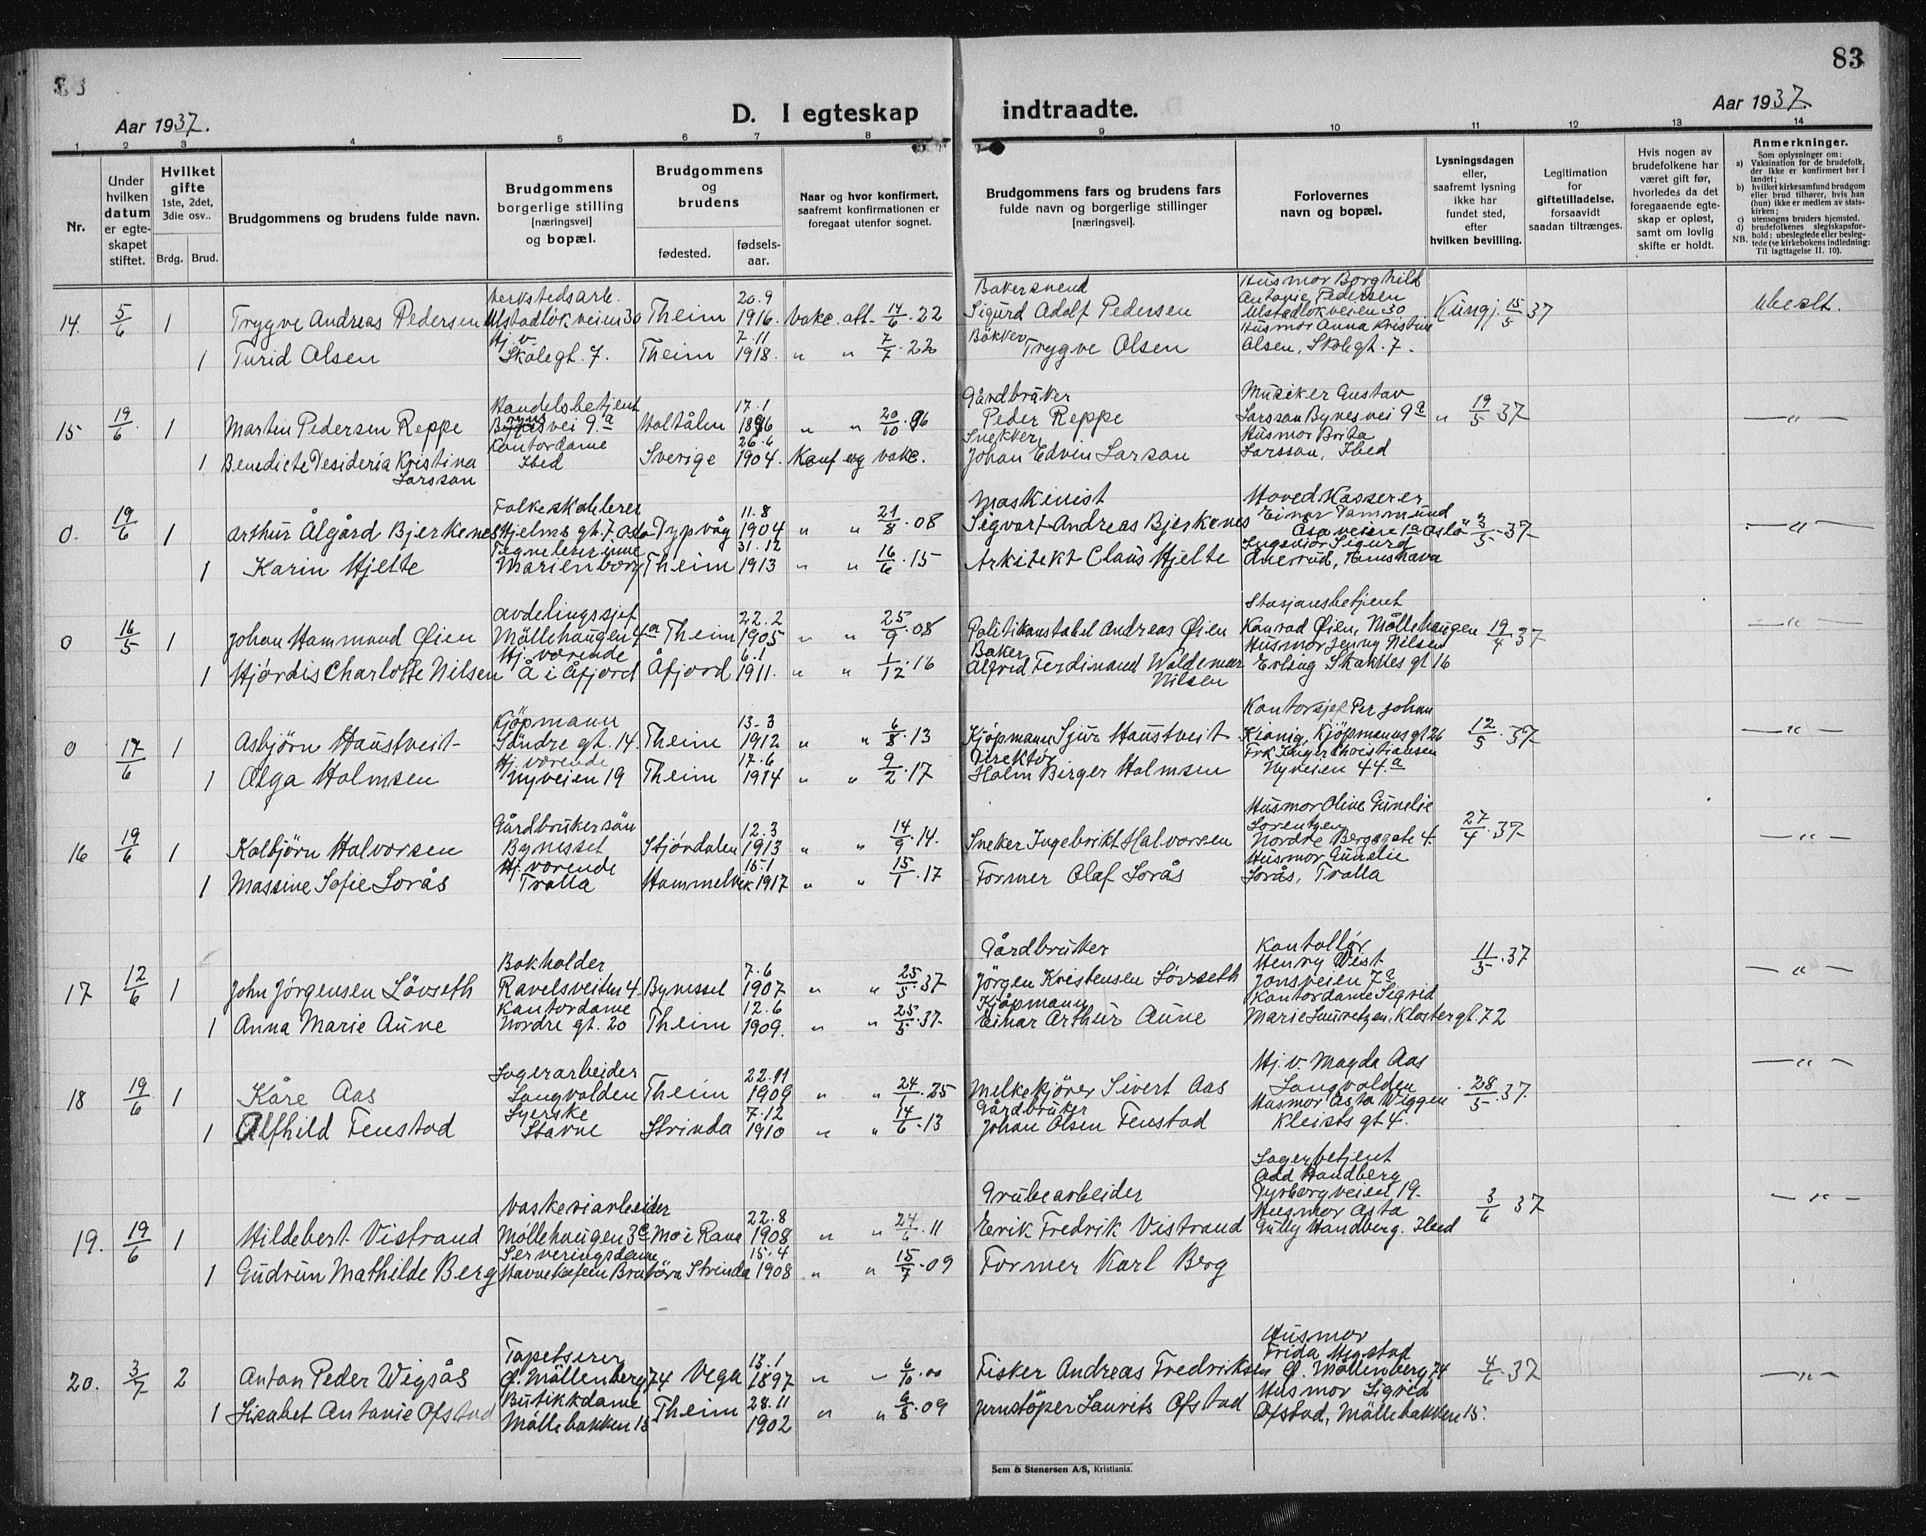 83
Aar 1937.
D. I egteskap indtraadte.
Aar 1937
1 2 3 4 5 6 7 8 9 10 11 12 13 14
Nr.
Under hvilken datum er egteskapet stiftet.
Hvilket gifte 1ste, 2det, 3die osv..
Brdg. Brud.
Brudgommens og brudens fulde navn.
Brudgommens borgerlige stilling [næringsvei] og bopæl.
Brudgommens og brudens
fødested.
fødselsaar.
Naar og hvor konfirmert, saafremt konfirmationen er foregaat utenfor sognet.
Brudgommens fars og brudens fars fulde navn og borgerlige stillinger [næringsvei].
Forlovernes navn og bopæl.
Lysningsdagen eller, saafremt lysning ikke har fundet sted, efter hvilken bevilling.
Legitimation for giftetilladelse, forsaavidt saadan tiltrænges.
Hvis nogen av brudefolkene har været gift før, hvorledes da det foregaaende egteskap er opløst, samt om lovlig skifte er holdt.
Anmerkninger.
Som oplysninger om:
a) Vaksination for de brudefolk, der ikke er konfirmert her i landet;
b) hvilket kirkesamfund brudgom eller brud tilhører, hvis han (hun) ikke er medlem av statskirken;
c) utensogns bruders hjemsted.
d) brudefolkenes slegtskapsforhold: ubeslegtede eller beslegtede (se kirkebokens indledning: Til iagttagelse II. 10).
NB.
14. 5/6 1 Trygve Andreas Pedersen Verkstedsarb. Ulstadløkveien 30 Theim 20.9 1916. vakc. att. 14/6.22 Bakersvend Sigurd Adolf Pedersen Husmor Borghild Antonie Pedersen Ulstadløkveien 30 Kungj. 15/5 37 Ubeslt.
1 Turid Olsen Hj.v. Skolegt. 7. Theim 7.11 1918. " " 7/7.22 Bakker Trygve Olsen Husmor Anna Kristine Olsen, Skolegt. 7.
15 19/6 1 Martin Pedersen Reppe Handelsbetjent Bynesvei 9a Holtålen 17.1 1896 " " 20/10.96 Gårdbruker Peder Reppe Musiker Gustav Larsson Bynesvei 9a " 19/5 37 — " —
1 Benedicte Desideria Kristina Larsson Kontordame Ibed Sverige 26.6 1904. Konf og vakc. Snekker Johan Edvin Larson Husmor Brita Larsson, Ibed
0. 19/6 1 Arthur Ålgård Bjerkenes Folkeskolelærer Hjelmsgt. 7. Oslo Dypvåg 11.8 1904 " " 21/8.08 Maskinist Sigvart Andreas Bjerkenes Hovedkasserer Einar Tammund Åsaveien 1a Oslo 3/5 37 — " —
1 Karin Hjelte Tegnelærerinne Marienborg Theim 31.12 1913 " " 16/6.15 Arkitekt Claus Hjelte Ingeniør Sigurd
0 16/5 1 Johan Hammond Øien avdelingssjef Möllehaugen 4a Theim 22.2 1905 " " 25/9.08 Politikonstabel Andreas Øien Stasjonsbetjent Konrad Øien, Möllehaugen 19/4 37 — " —
1 Hjördis Charlotte Nilsen Hj. værende Å i Åfjord Åfjord 6.1 1911. " " 1/12.16 Baker Alfrid Ferdinand Waldemar Nilsen Husmor Jenny Nilsen Erling Skakkes gt 16
0 17/6 1 Asbjörn Haustveit Kjöpmann Söndre gt. 14 Theim 13.3 1912 " " 6/8.13 Kjöpmann Sjur Haustveit Kontorsjef Per Johan Kiönig, Kjöpmannsgt 26 12/5.37 — " —
1 Olga Holmsen Hj. værende Nyveien 19 Theim 17.6 1914 " " 9/2.17 Direktör Holm Birger Holmsen Frk Inger Christiansen Nyveien 44.a
16 19/6 1 Kolbjörn Halvorsen Gårdbrukersön Bynesset Stjördalen 12.3 1913 " " 14/9.14. Sneker Ingebrikt Halvorsen Husmor Olive Gunelie Lorentzen Nordre Bergsgate 4. 27/4.37 — " —
1 Massine Sofie Sorås Hj. værende Trolla Hammelvik 15.1 1917 " " 15/1.17 Former Olaf Sorås Husmor Gunelie Sorås, Trolla
17 12/6 1 John Jörgensen Lövseth Bokholder Ravelsveiten 4. Bynesset 7.6 1907 " " 25/5.37 Gårdbruker Jörgen Kristensen Lövseth Kontollör Henry Wist Jonsveien 7a 11/5.37 — " —
1 Anna Marie Aune Kontordame Nordre gt. 20 Theim 12.6 1909. " " 25/5.37. Kjöpmann Einar Arthur Aune Kontordame Sigrid Marie Lauretzen. Klostergt. 72
18 19/6 1 Kåre Aas Lagerarbeider Langvolden Theim 22.11 1909 " " 24/1.25 Melkekjörer Sivert Aas Hj. v. Magda Aas Langvolden 28/5.37. — " —
1 Alfhild Fenstad Syerske Stavne Strinda 7.12 1910 " " 14/6.13 Gårdbruker Johan Olsen Fenstad Husmor Asta Wiggen Kleists gt 4.
19. 19/6 1 Hildebert Vistrand Vaskeriarbeider Möllehaugen 3c Mo i Rana 22.8 1908 " " 24/6.11 Grubearbeider Erik Fredrik Vistrand Lagerbetjent Odd Handberg Nyborgveien 19. 3/6 37 — " —
1 Gudrun Mathilde Berg Serveringsdame Havnekafeen Brattöra Strinda 15.4 1908 " " 15/7.09 Former Karl Berg Husmor Asta Gully Handberg. Ibed
20. 3/7 2 Anton Peder Wigsås Tapetserer Ø. Möllenberg 74 Vega 13.1 1897 " " 6/10.00 Fisker Andreas Fredriksen Husmor Frida Ø. Möllenberg 74 4/6.37 — " —
1 Lisabet Antonie Ofstad Butikkdame Möllebakken 15 Theim 28.11 1902 " " 6/8.09 Jernstöper Laurits Ofstad Husmor Sigrid Ofstad, Möllebakken 15.
Sem & Stenersen A/S, Kristiania.